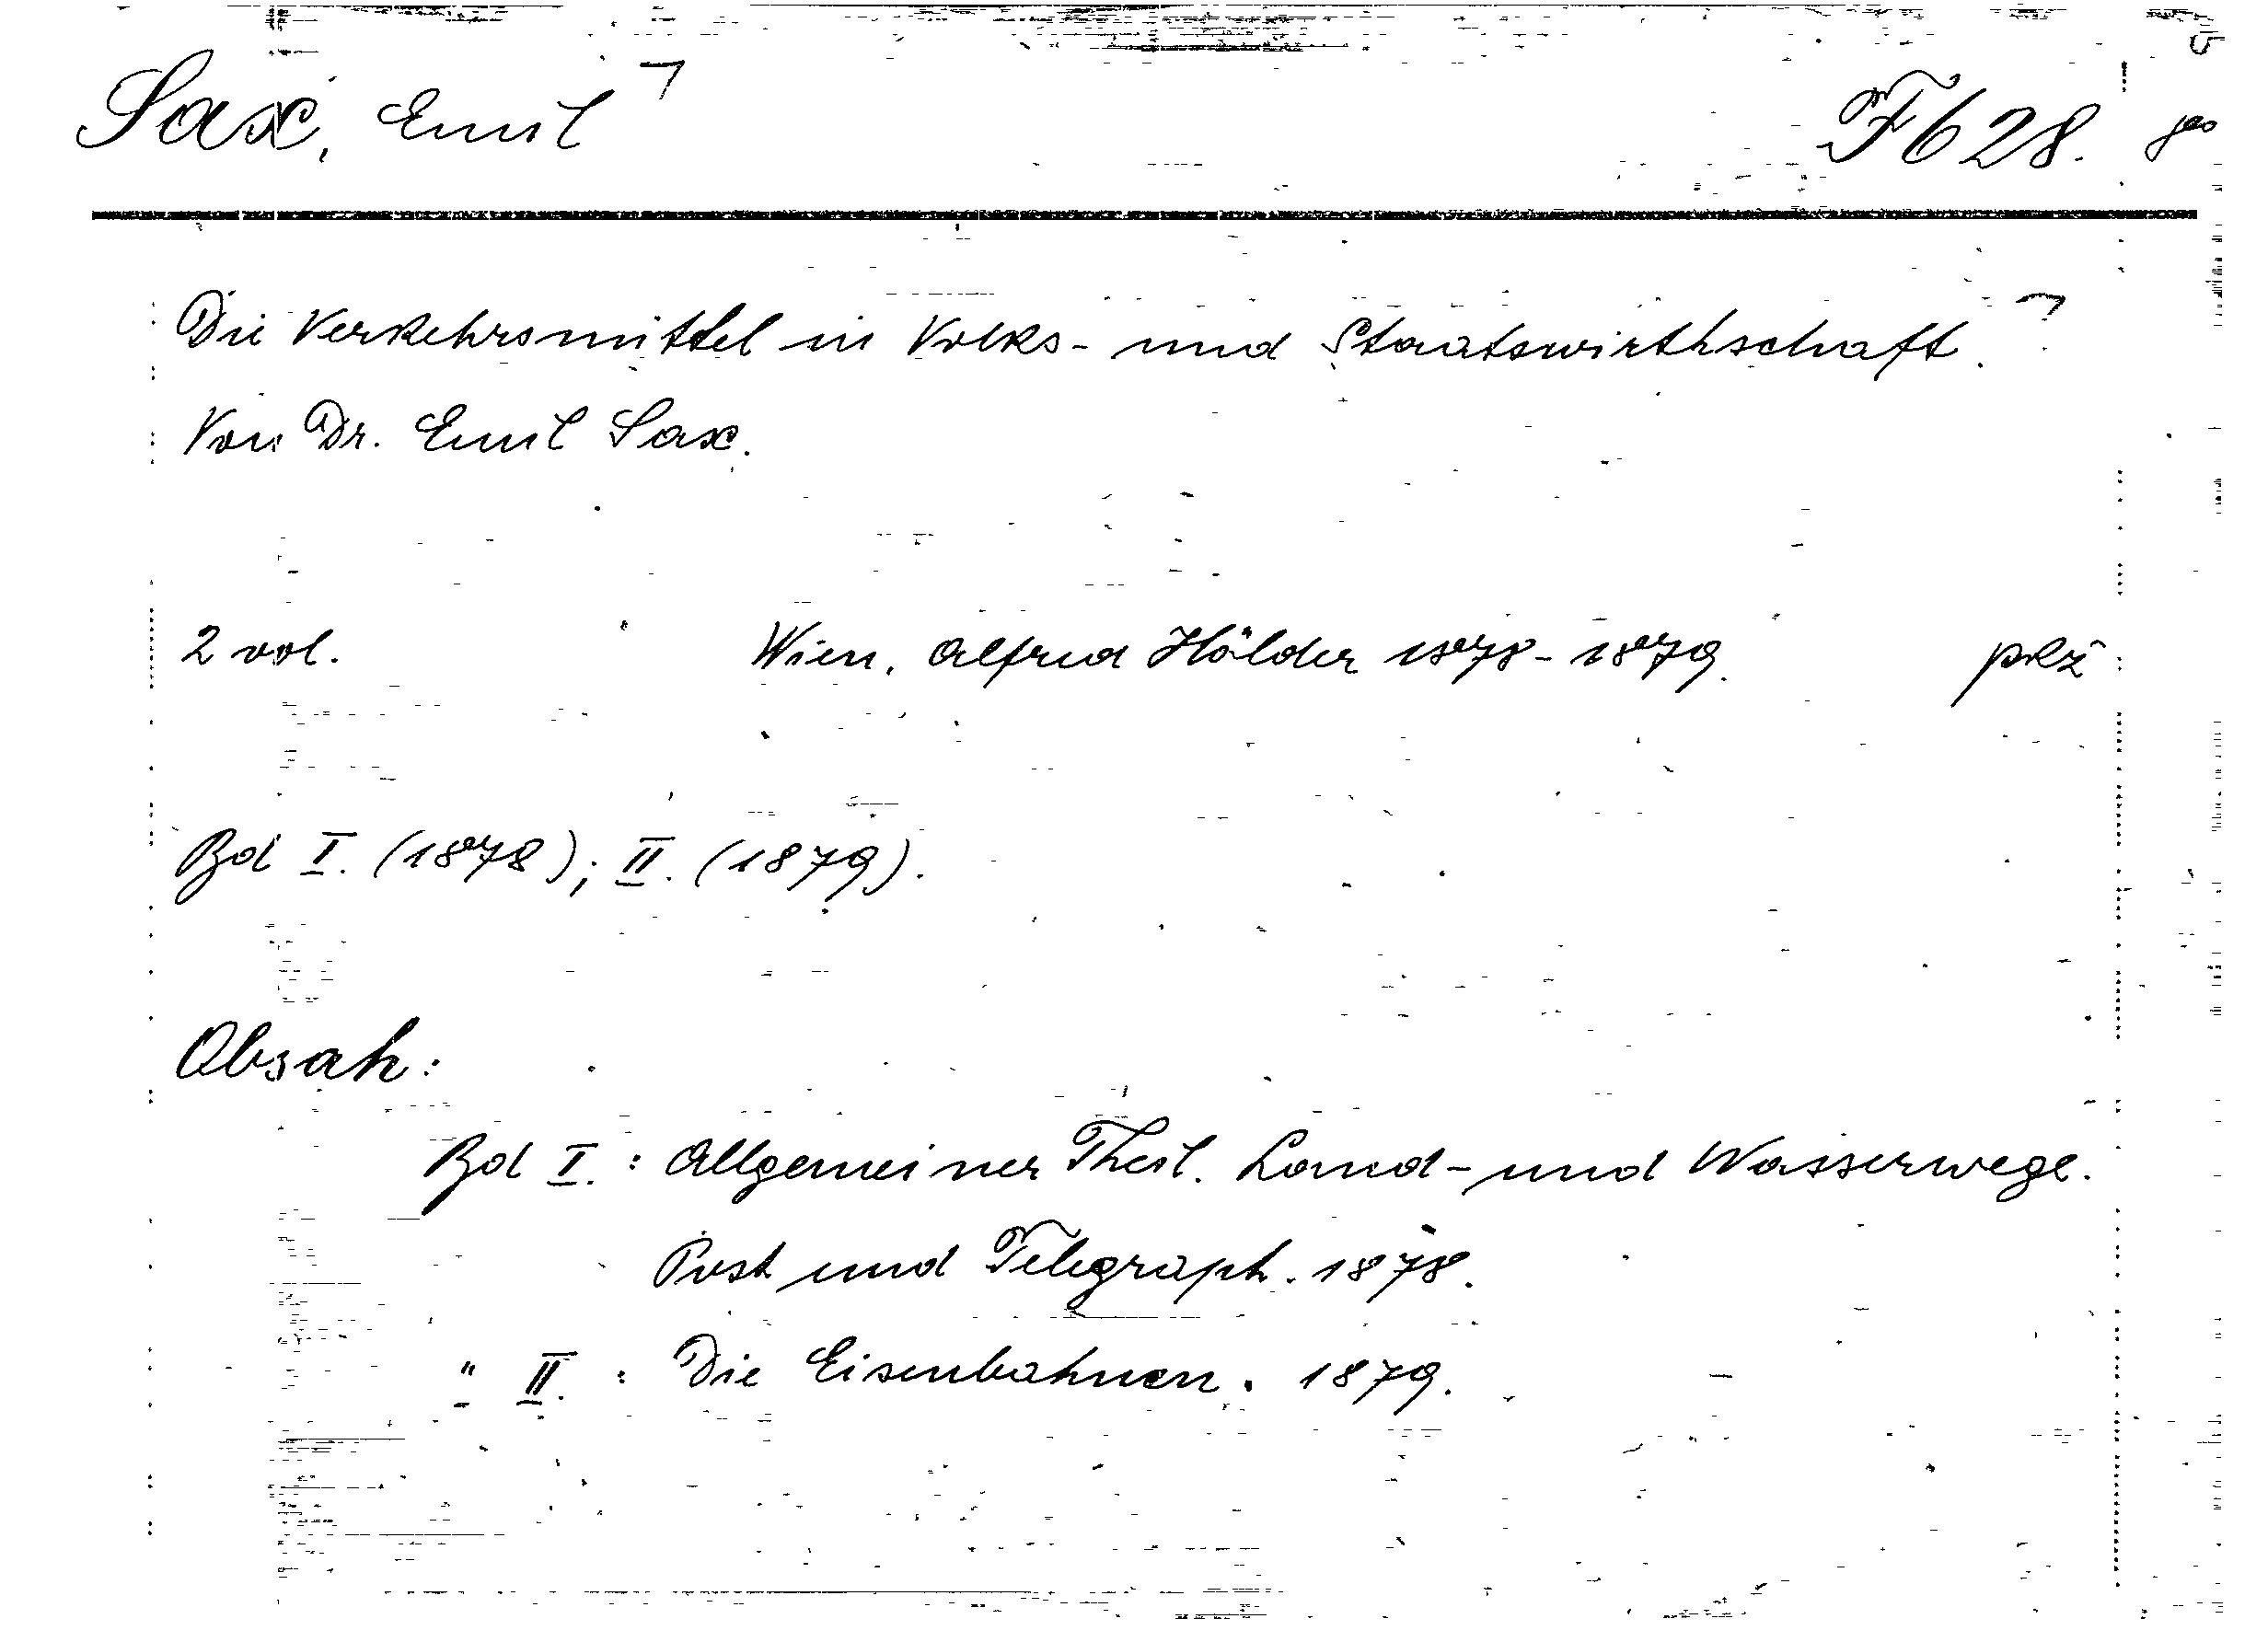 Sax, Emil ꓶ F 628.
Die Verkehrsmittel in Volks- und Staatswirthschaft. ꓶ
Von Dr. Emil Sax.
2 vol. Wien, Alfred Hölder 1878-1879. prž
Bd I. (1878); II. (1879).
Obsah:
Bd I. : Allgemeiner Theil. Land- und Wasserwege.
Post und Telegraph. 1878.
" II. : Die Eisenbahnen. 1879.